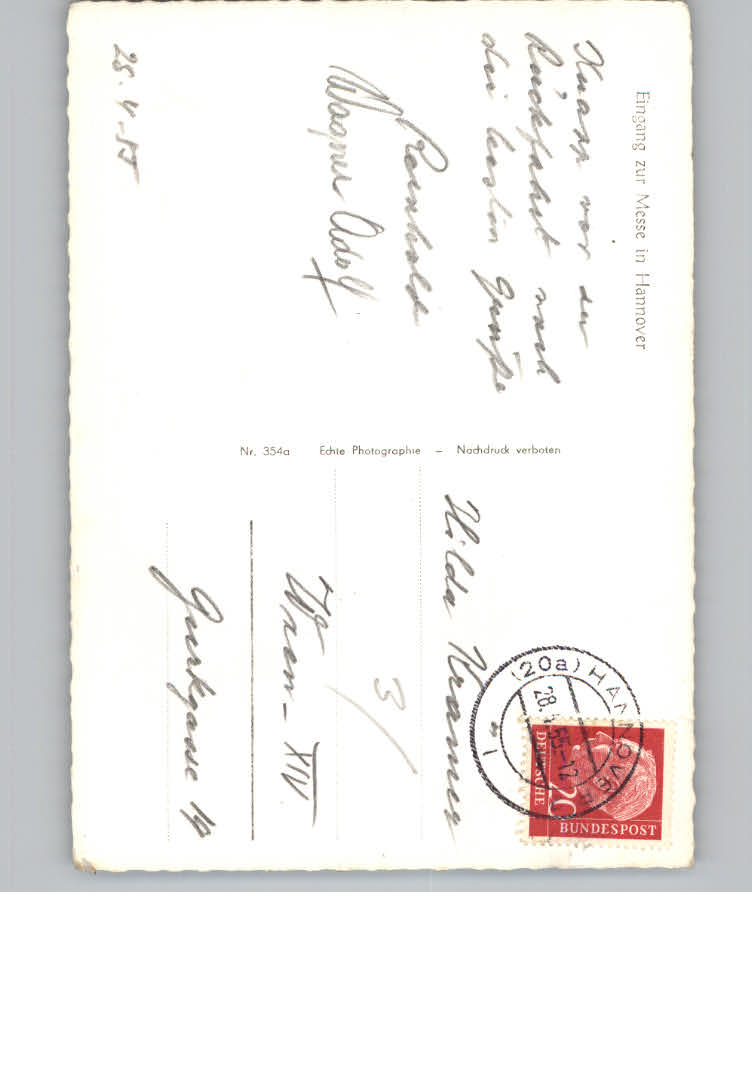 Eingang zur Messe in Hannover
Knapp vor der
Rückfahrt noch
die besten Grüße
Reinhold
Wagner Adolf
25.4.55
Nr. 354a Echte Photographie – Nachdruck verboten
(20a) HANNOVER
28. 55-12
1
DEUTSCHE
BUNDESPOST
20
Hilda Kramer
3
Wien-XIV
Gurkgasse